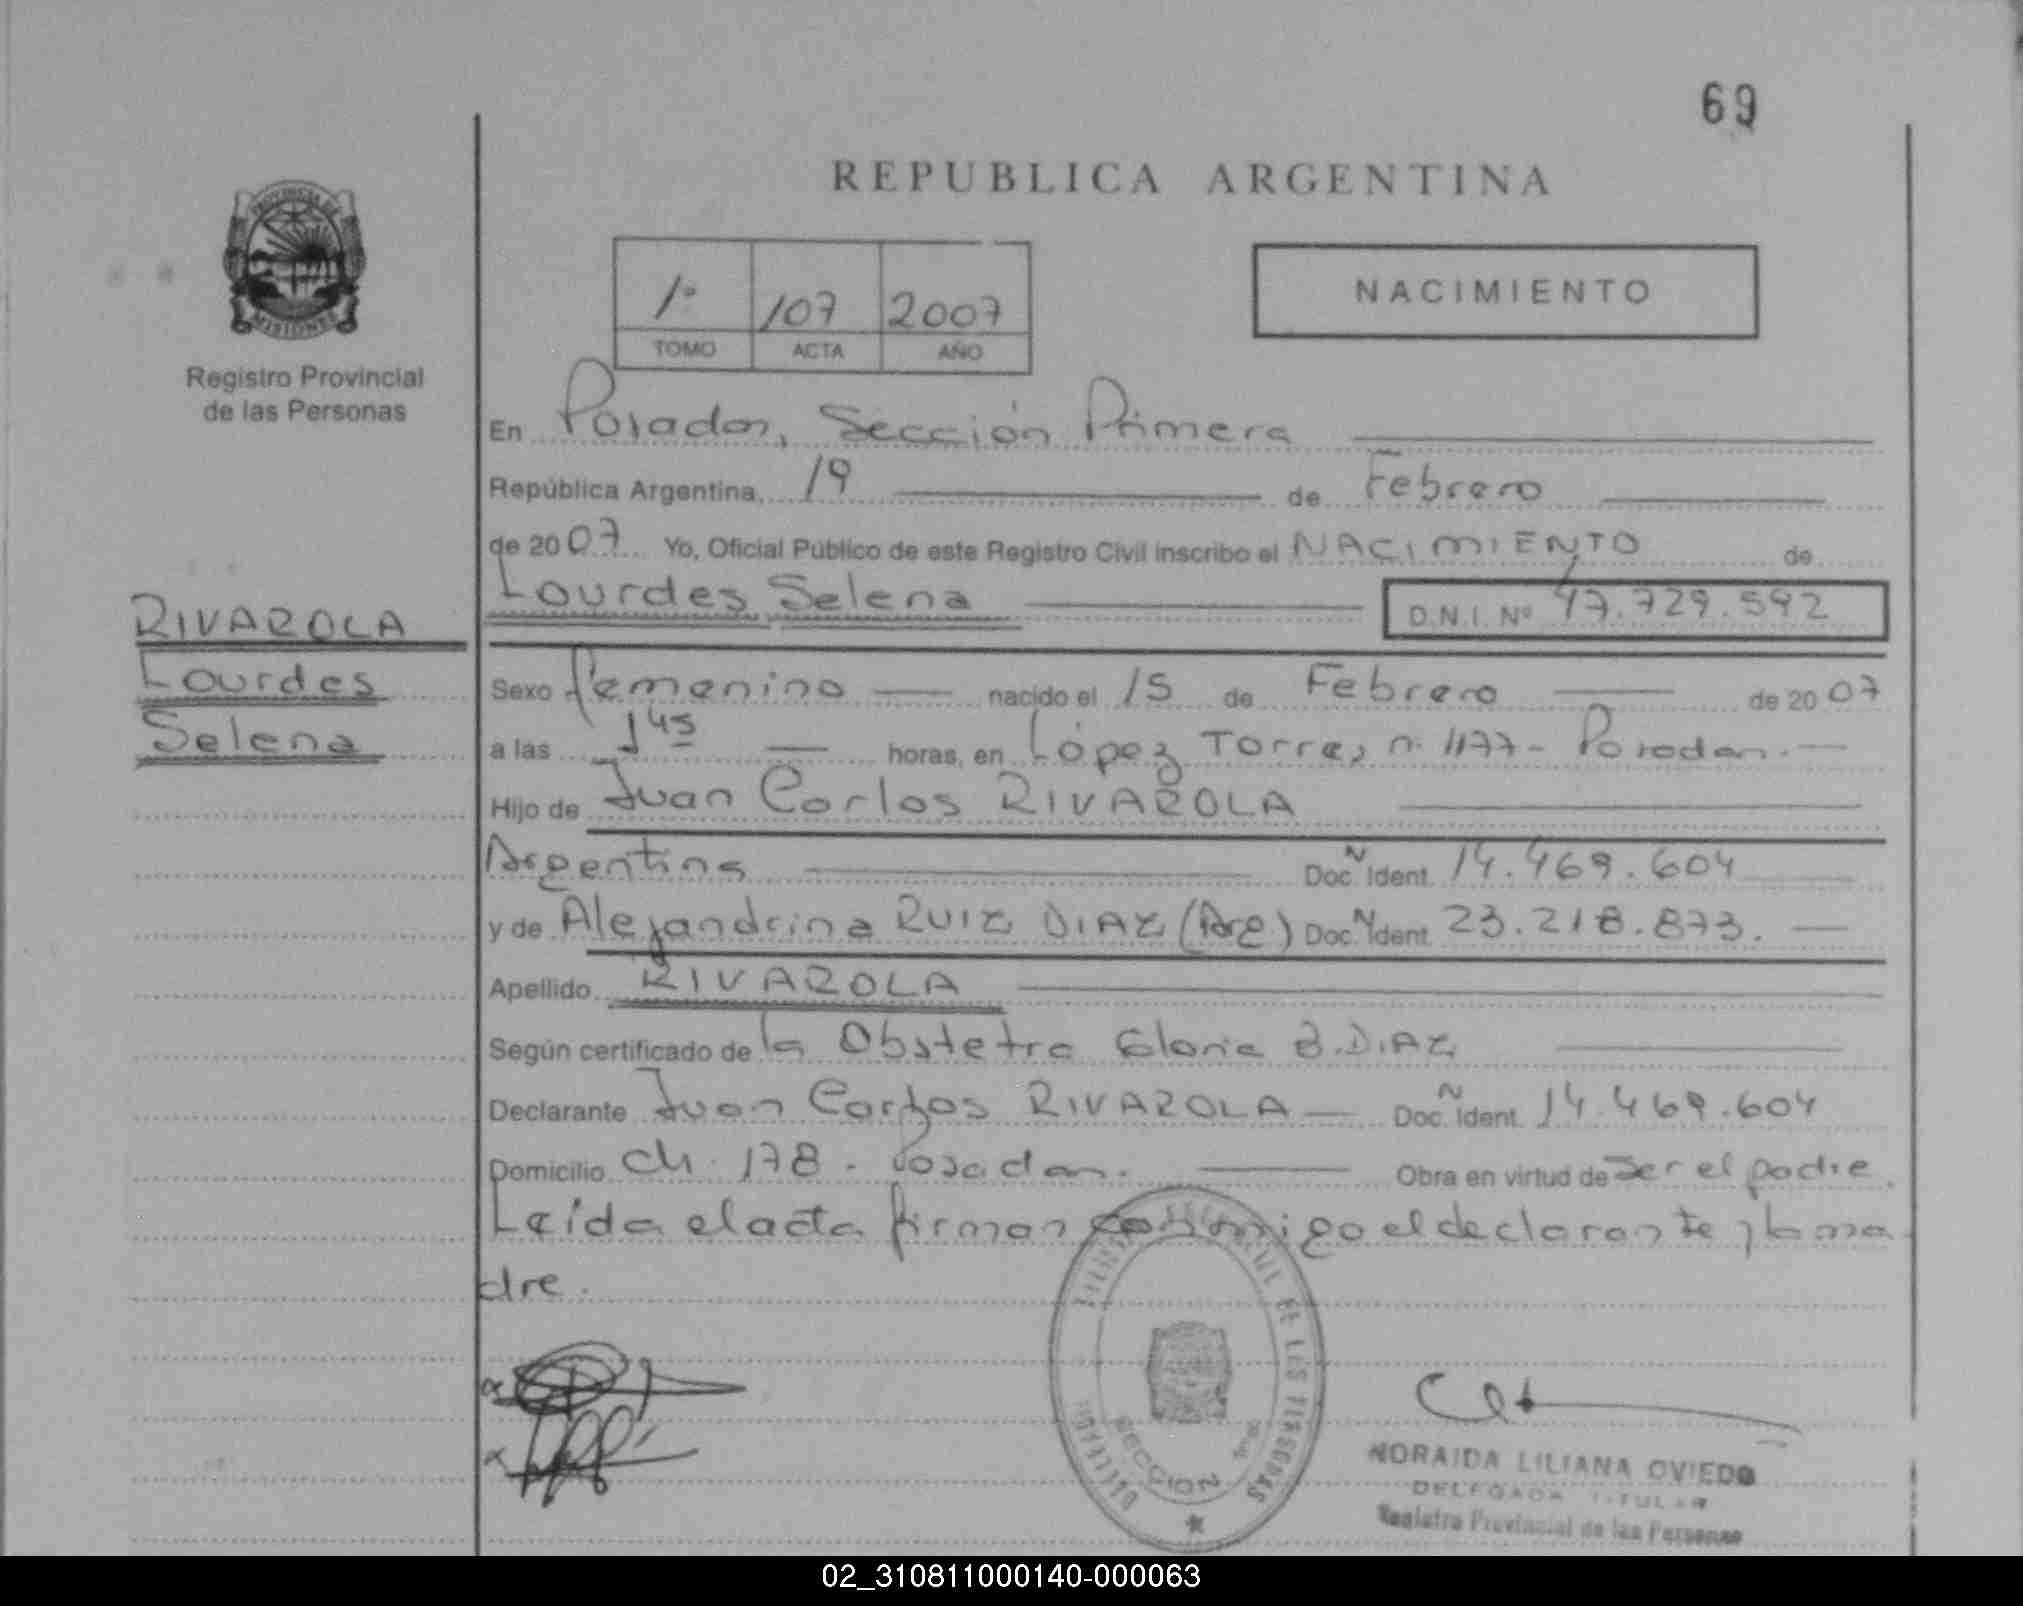 69
REPUBLICA ARGENTINA
PROVINCIA DE
MISIONES
Registro Provincial
de las Personas
1º 107 2007
TOMO ACTA AÑO
NACIMIENTO
En Posadas, Sección Primera
República Argentina, 19 de Febrero
de 2007 Yo, Oficial Público de este Registro Civil inscribo el NACIMIENTO de
Lourdes Selena D.N.I. Nº 47.729.592
RIVAROLA
Lourdes
Selena
Sexo femenino nacido el 15 de Febrero de 2007
a las 1 45 horas, en López Torres n. 1177 - Posadas.
Hijo de Juan Carlos RIVAROLA
Argentina Doc. Ident. 14.469.604
y de Alejandrina RUIZ DIAZ (Arg) Doc. Ident. 23.218.873.
Apellido RIVAROLA
Según certificado de la Obstetra Gloria B. DIAZ
Declarante Juan Carlos RIVAROLA Doc. Ident. 14.469.604
Domicilio Ch. 178. Posadas. Obra en virtud de ser el padre.
Leída el acta firman conmigo el declarante y la ma
dre.
DE LAS PERSONAS
SECCION 1ra.
NORAIDA LILIANA OVIEDO
DELEGADA TITULAR
Registro Provincial de las Personas
02_310811000140-000063